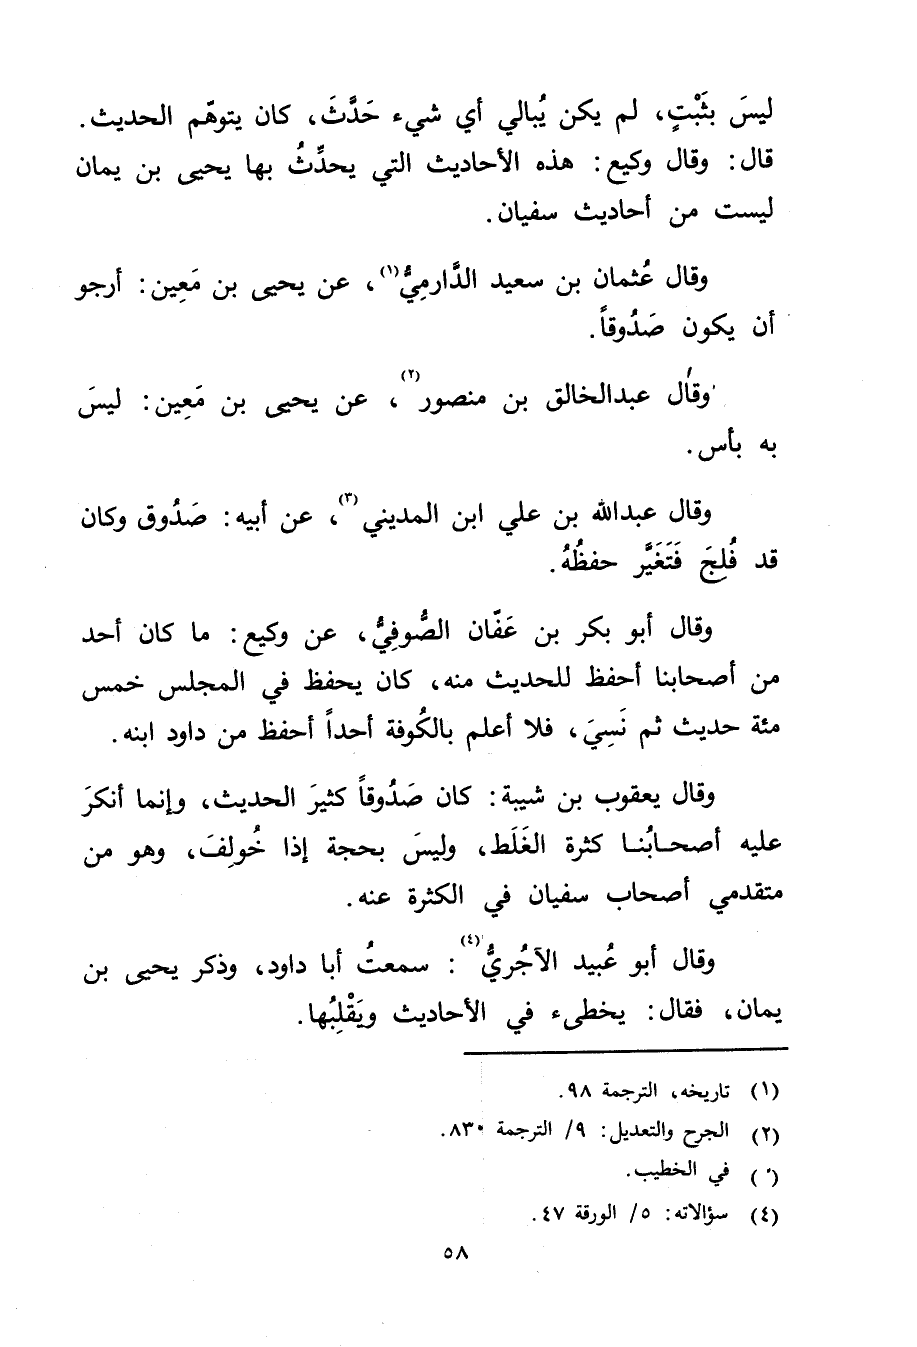 ليسَ بثَبْتٍ، لم يكن يُبالي أي شيء حَدَّثَ، كان يتوهّم الحديث.
قال: وقال وكيع: هذه الأحاديث التي يحدِّثُ بها يحيى بن يمان
ليست من أحاديث سفيان.
وقال عُثمان بن سعيد الدَّارمِيُّ(١)، عن يحيى بن مَعِين: أرجو
أن يكون صَدُوقاً.
وقال عبدالخالق بن منصور(٢)، عن يحيى بن مَعِين: ليسَ
به بأس.
وقال عبدالله بن علي ابن المديني(٣)، عن أبيه: صَدُوق وكان
قد فُلِجَ فَتَغَيَّر حفظُهُ.
وقال أبو بكر بن عَفّان الصُّوفِيُّ، عن وكيع: ما كان أحد
من أصحابنا أحفظ للحديث منه، كان يحفظ في المجلس خمس
مئة حديث ثم نَسِيَ، فلا أعلم بالكُوفة أحداً أحفظ من داود ابنه.
وقال يعقوب بن شيبة: كان صَدُوقاً كثيرَ الحديث، وإنما أنكرَ
عليه أصحـابُنـا كثرة الغَلَط، وليسَ بحجة إذا خُولِفَ، وهو من
متقدمي أصحاب سفيان في الكثرة عنه.
وقال أبو عُبيد الآجُريُّ(٤): سمعتُ أبا داود، وذكر يحيى بن
يمان، فقال: يخطىء في الأحاديث ويَقْلِبُها.
(١) تاريخه، الترجمة ٩٨.
(٢) الجرح والتعديل: ٩/ الترجمة ٨٣٠.
( ) في الخطيب.
(٤) سؤالاته: ٥/ الورقة ٤٧.
٥٨